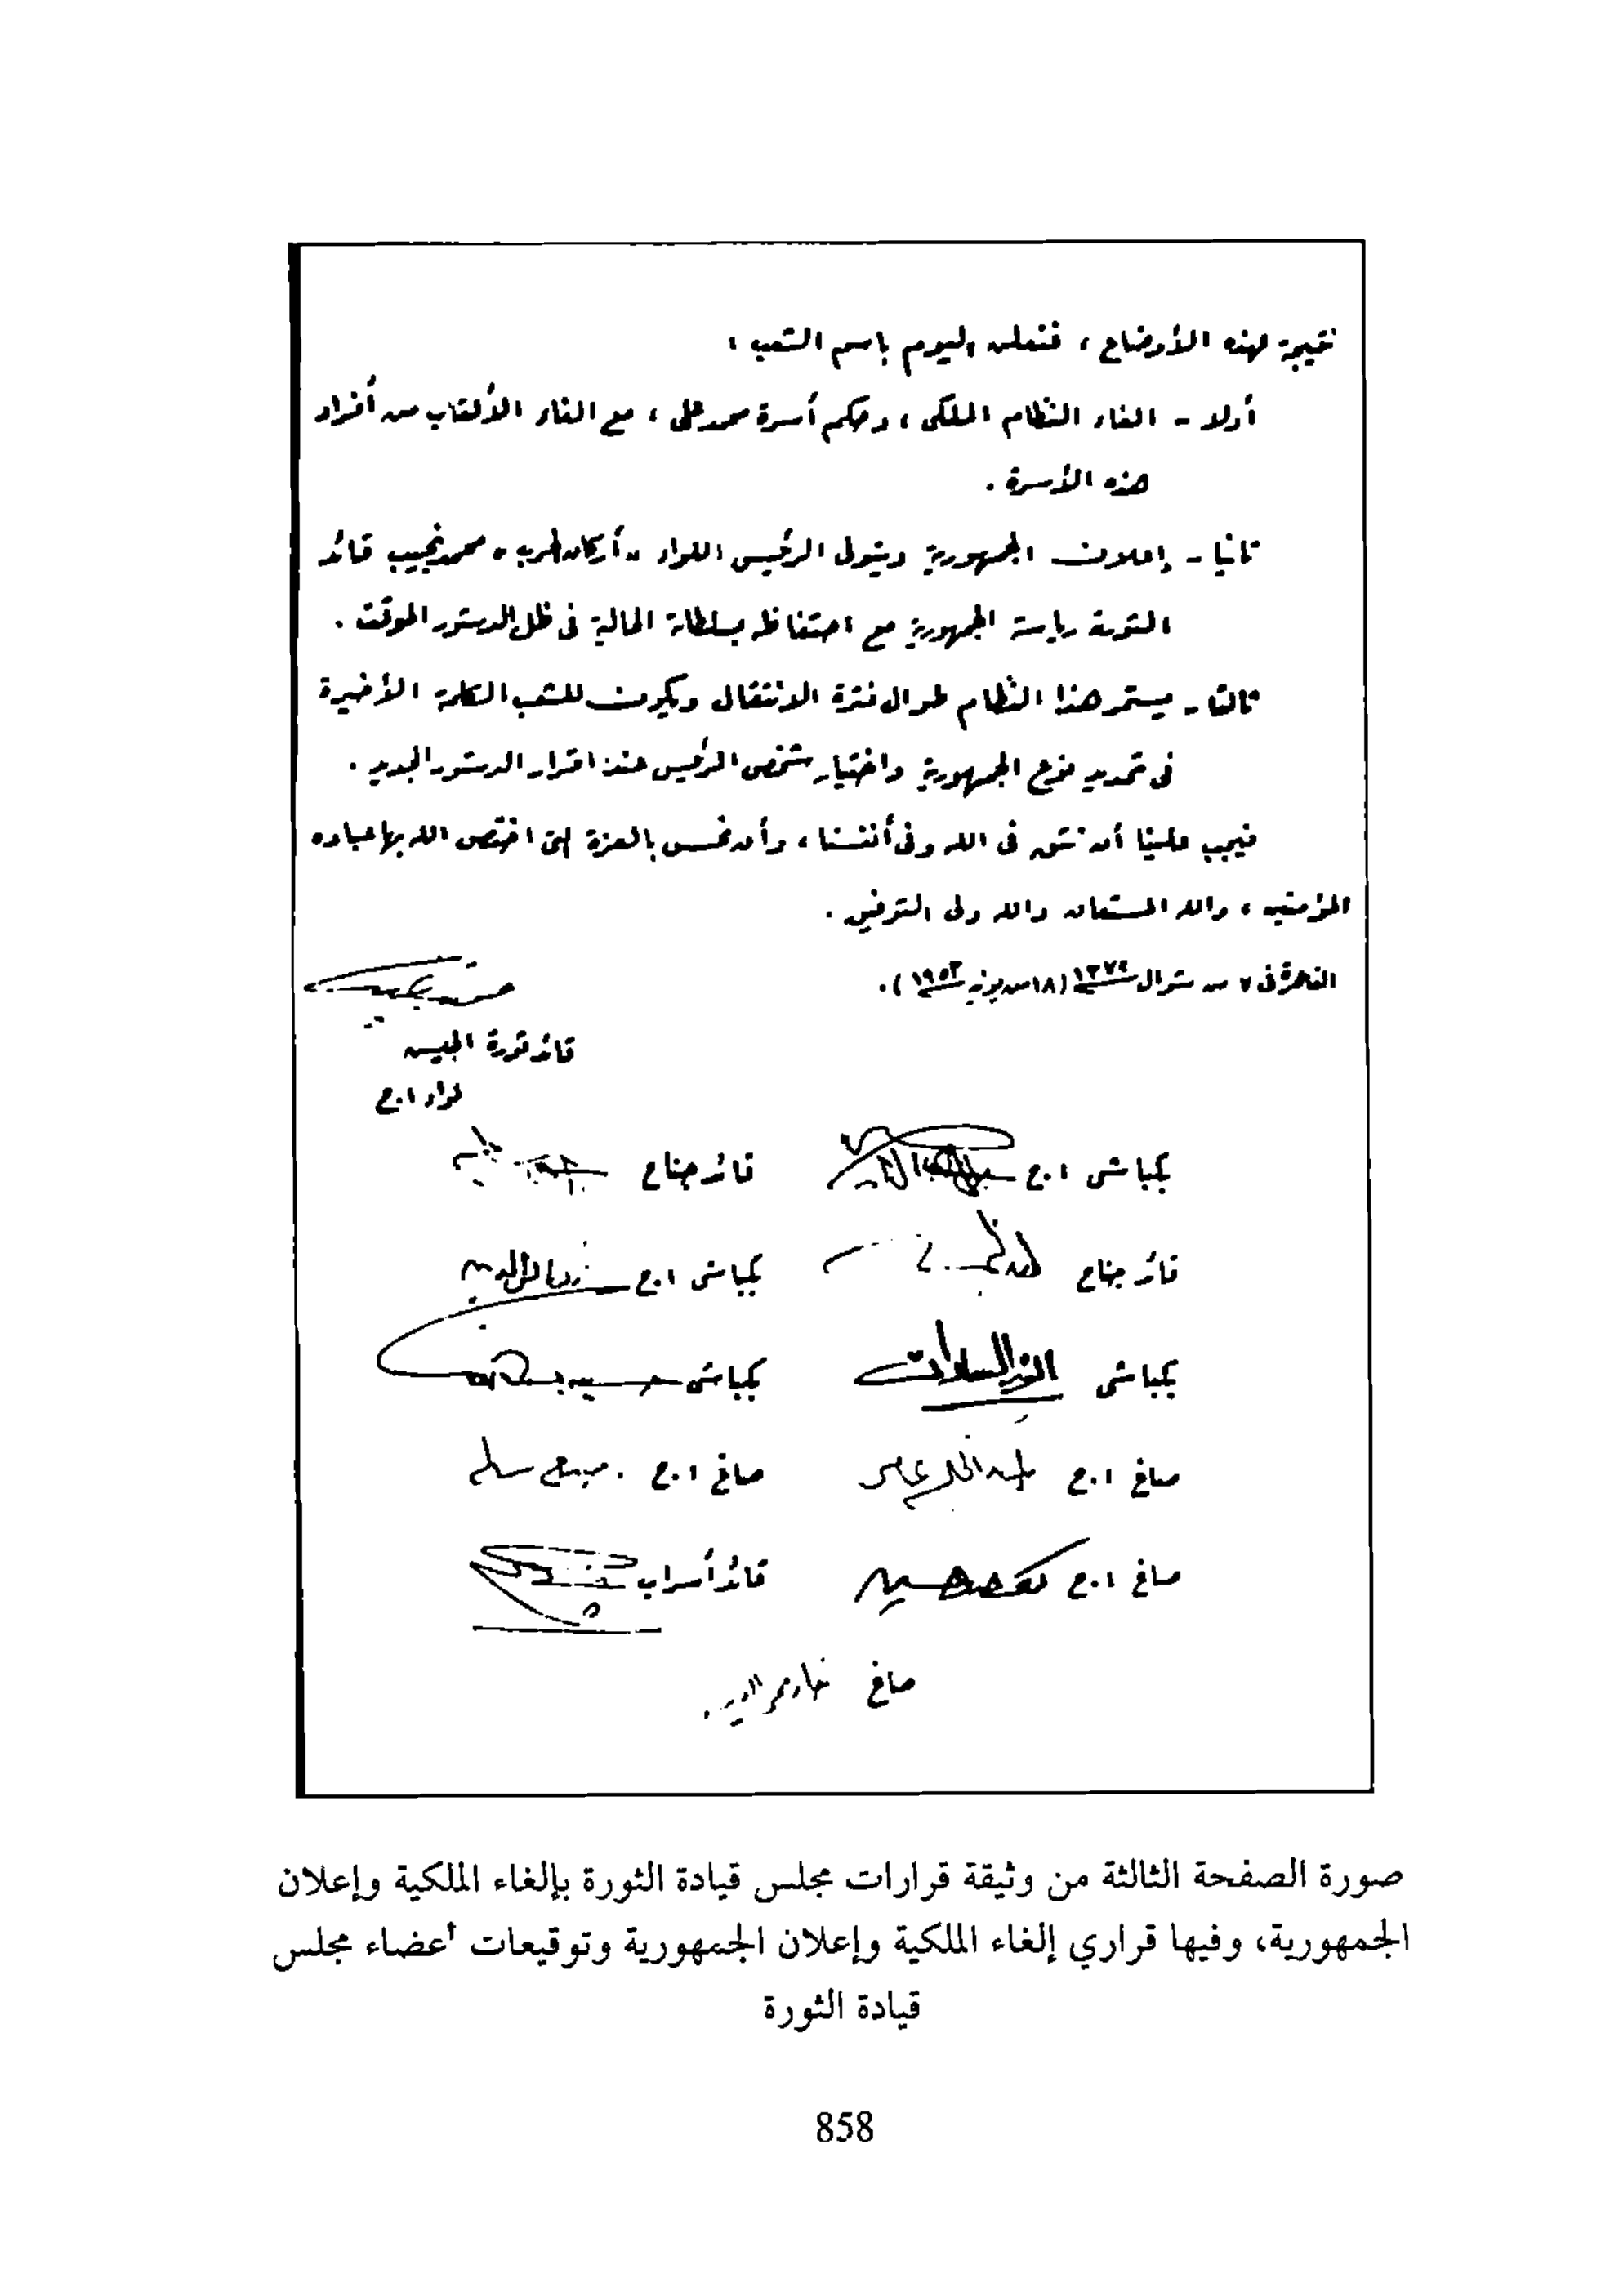 نتيجة لهذه الأوضاع ، فنعلن اليوم باسم الشعب ،
أولا - الغاء النظام الملكى ، وحكم أسرة محمد على ، مع الغاء الألقاب من أفراد
هذه الأسرة .
ثانيا - إعلان الجمهورية ويتولى الرئيس اللواء " أركان حرب " محمد نجيب قائد
الثورة رياسة الجمهورية مع احتفاظه بسلطاته الحالية فى ظل الدستور المؤقت .
ثالثا - يستمر هذا النظام طوال فترة الانتقال ويكون للشعب الكلمة الأخيرة
فى تحديد نوع الجمهورية واختيار شخص الرئيس عند اقرار الدستور الجديد .
فيجب علينا أن نثق فى الله وفى أنفسنا ، وأن نحس بالعزة التى اختص الله بها عباده
المؤمنين ، والله المستعان والله ولى التوفيق .
القاهرة فى ٧ من شوال ١٣٧٢ (١٨ من يونيه ١٩٥٣ ) .
قائد ثورة الجيش
لواء ا.ح
بكباشى ا.ح
قائد جناح
قائد جناح
بكباشى ا.ح
بكباشى أنور السادات
بكباشى حسين
صاغ ا.ح عبد الحكيم عامر
صاغ ا.ح سالم
صاغ ا.ح حسين
قائد أسراب
صاغ
صورة الصفحة الثالثة من وثيقة قرارات مجلس قيادة الثورة بإلغاء الملكية وإعلان
الجمهورية، وفيها قراري إلغاء الملكية وإعلان الجمهورية وتوقيعات أعضاء مجلس
قيادة الثورة
858